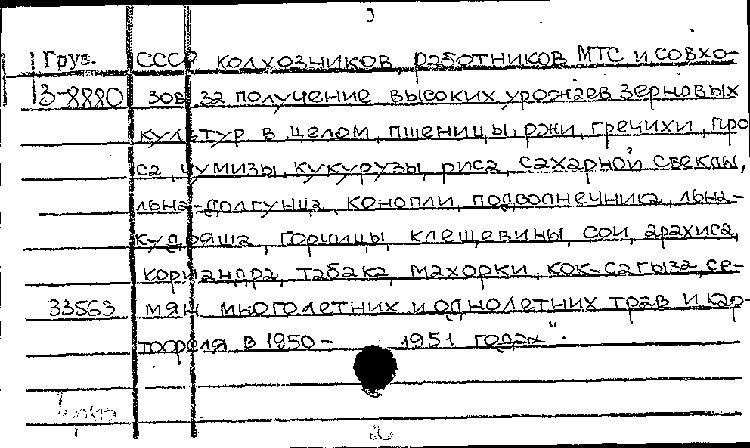 3
Груз. СССР колхозников, работников МТС и совхо-
3-8880 зов за получение высоких урожаев зерновых
культур в целом, пшеницы, ржи, гречихи, про
са, чумизы, кукурузы, риса, сахарной свеклы,
льна-долгунца, конопли, подсолнечника, льна-
кудряша, горчицы, клещевины, сои, арахиса,
кориандра, табака, махорки, кок-сагыза, се-
33563 мян многолетних и однолетних трав и кар-
тофеля в 1950- 1951 годах".